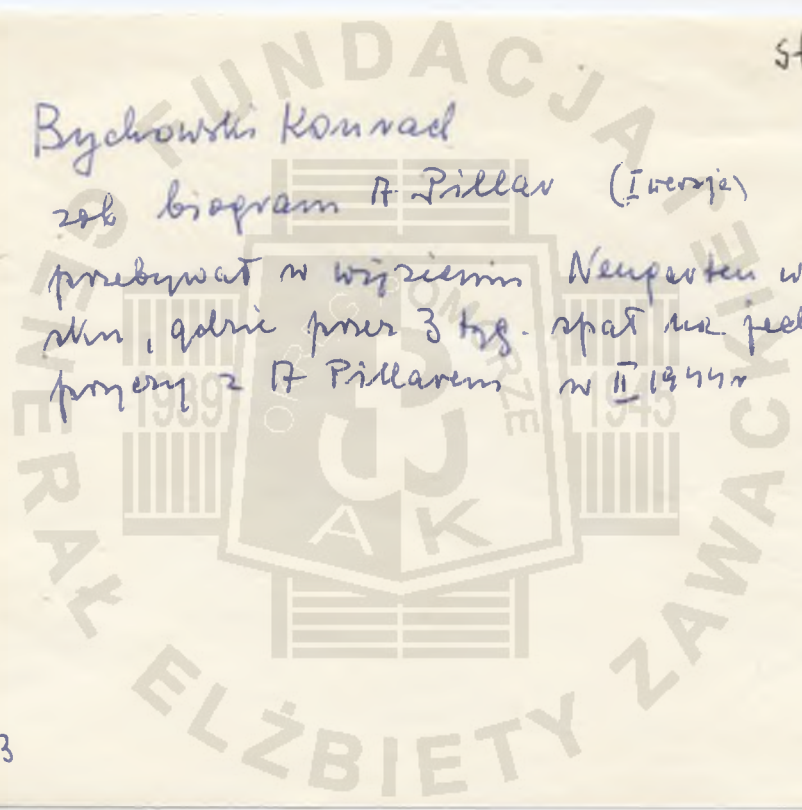 St
Bychowski Konrad
zob biogram A Pillar (I wersja)
przebywał w więzieniu Neugarten w
sku, gdzie przez 3 tyg. spał na jed
pryczy z A Pillarem w II 1944 r
3
FUNDACJA GENERAŁ ELŻBIETY ZAWACKIEJ
OKRĘG POMORZE
1939 1945
AK